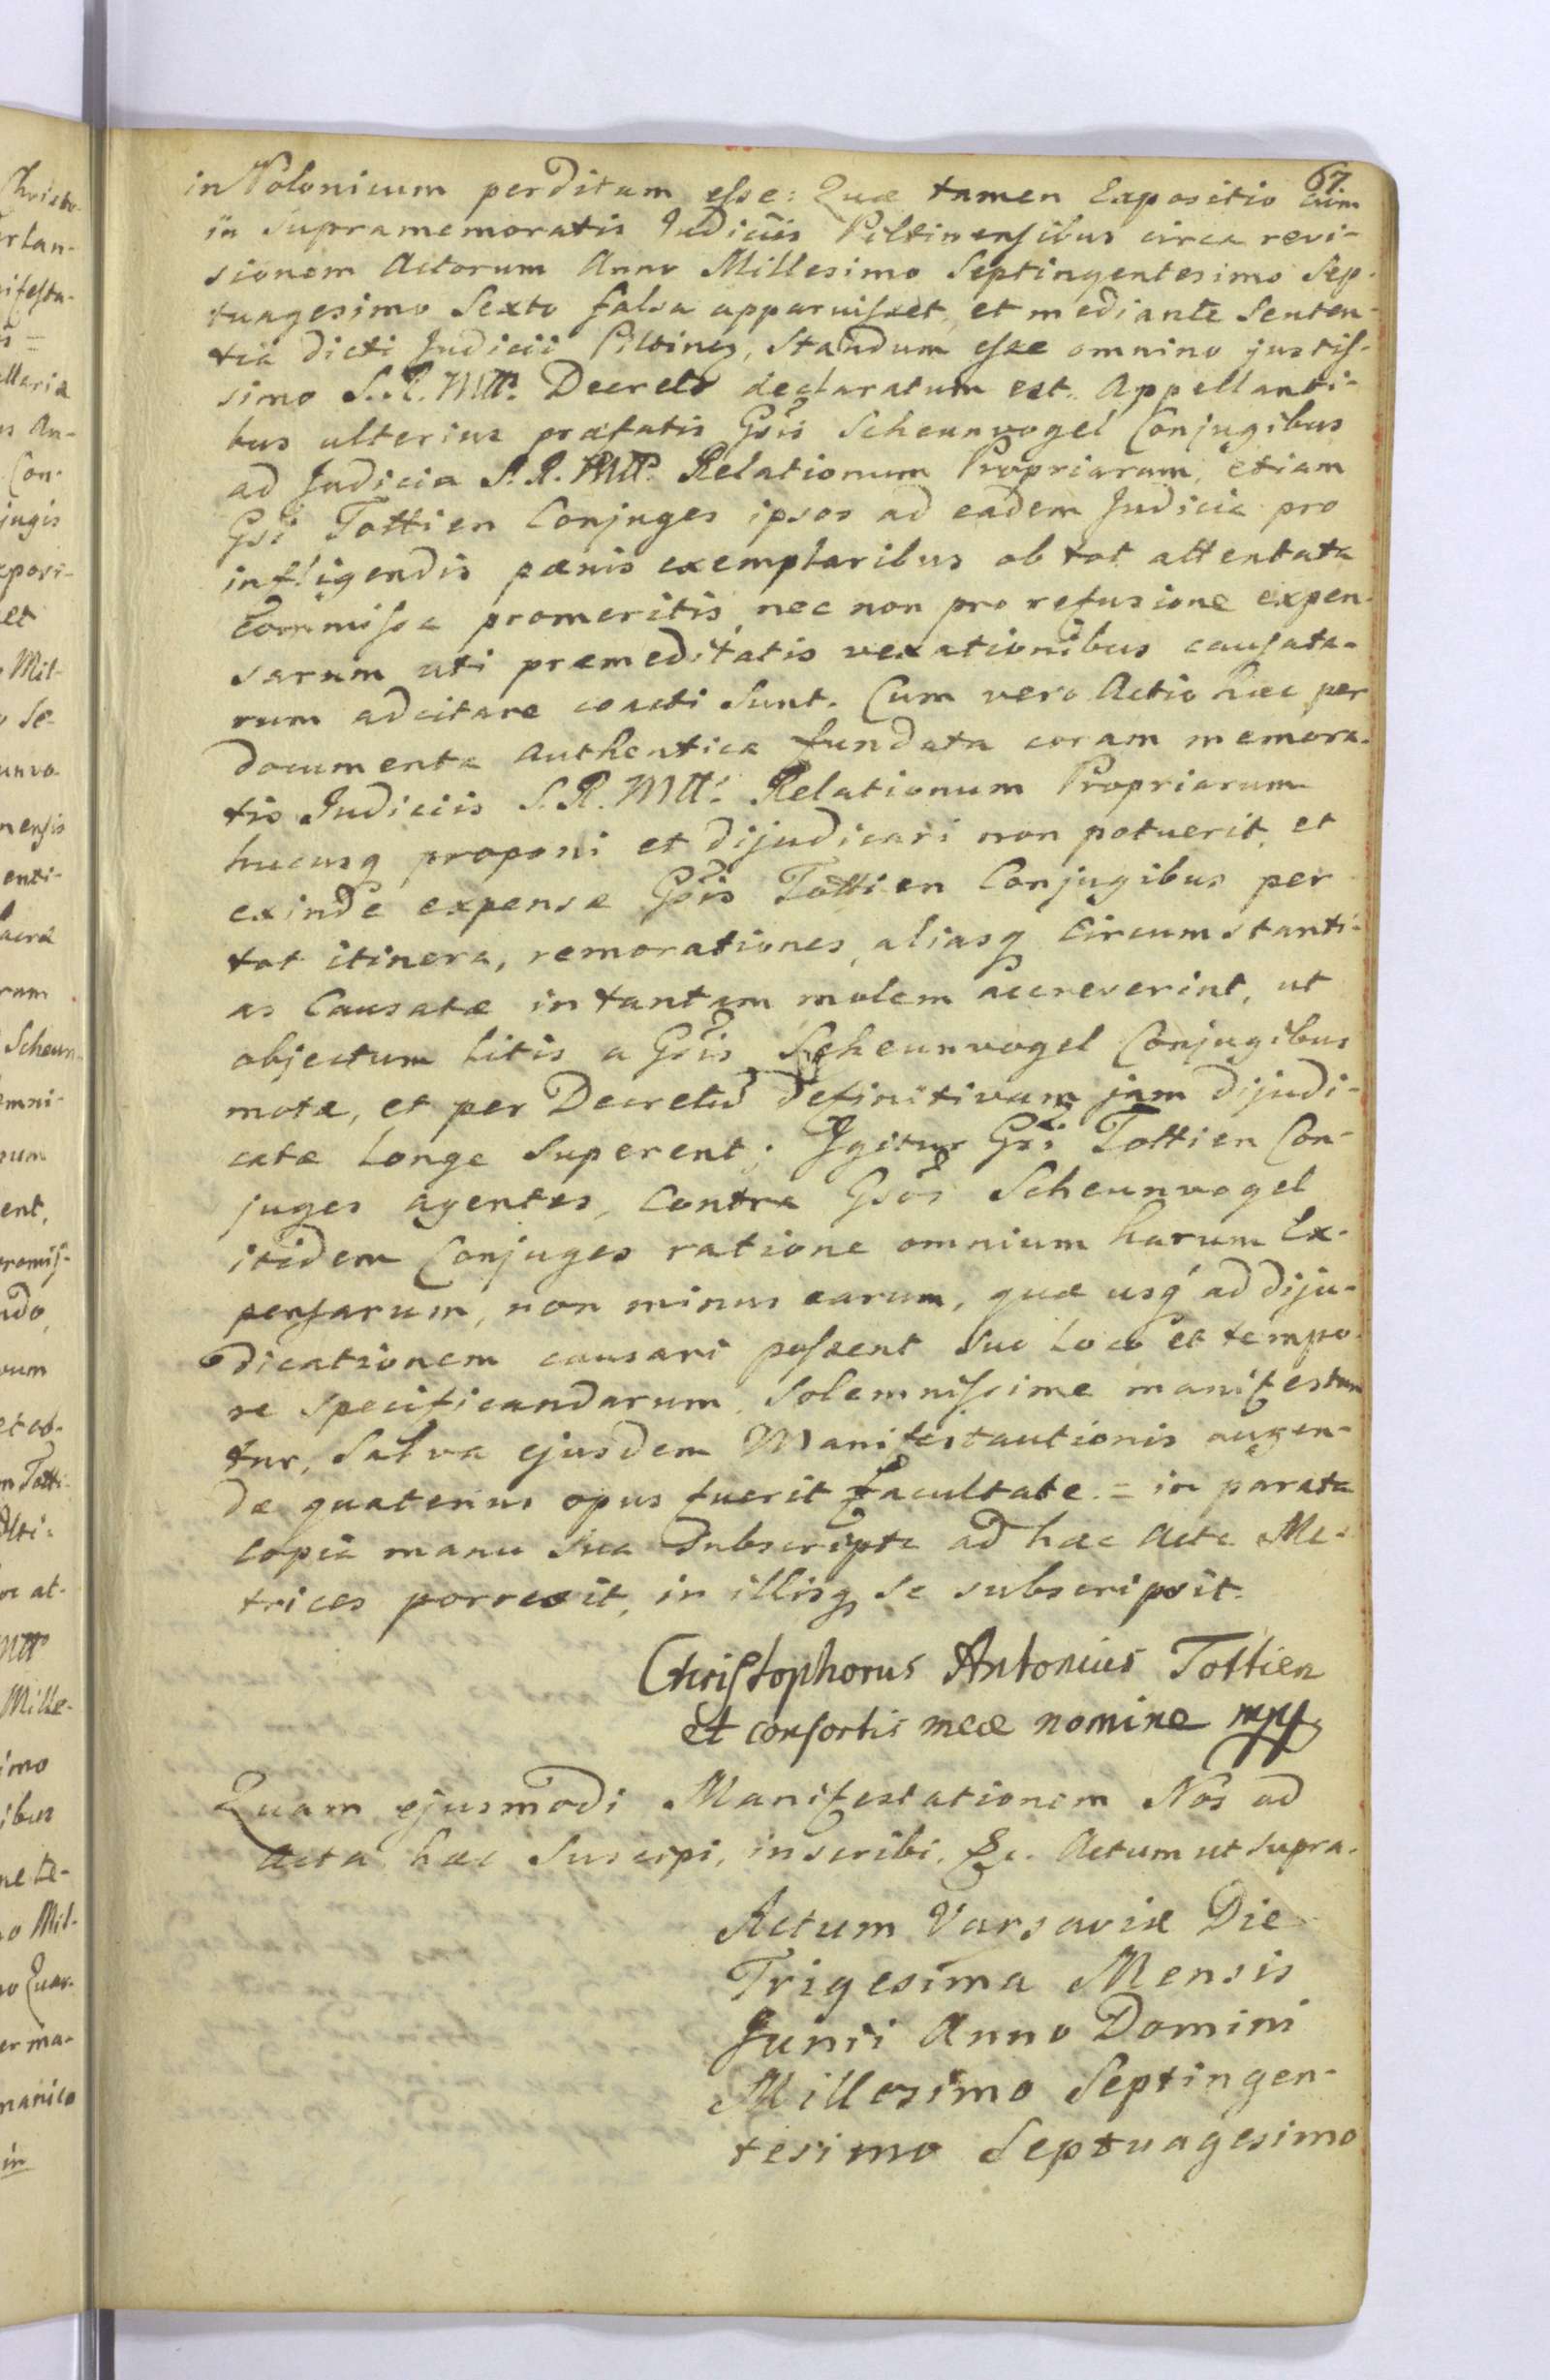 67
in Polonicum perditum esse: Quæ tamen Expositio cum
in supramemoratis Judiciis Piltinensibus circa revi-
sionem Actorum Anno Millesimo Septingentesimo Sep-
tuagesimo Sexto falsa apparuisset, et mediante Senten-
tia dicti Judicii Piltinen, Standum esse omnino justis-
simo S. R. Mttis Decreto declaratum est. Appellanti-
bus ulterius præfatis Gsis Scheunvogel Conjugibus
ad Judicia S. R. Mttis Relationum Propriarum, etiam
Gsi Tottien Conjuges ipsos ad eadem Judicia pro
infligendis pænis exemplaribus ob tot attentata
Commissa promeritis, nec non pro refusione expen-
sarum uti præmeditatis vexationibus causata-
rum adcitare coacti sunt. Cum vero Actio hæc per
documenta authentica fundata coram memora-
tis Judiciis S. R. Mttis Relationum Propriarum
hucusq proponi et dijudicari non potuerit, et
exinde expensæ Gsis Tottien Conjugibus per
tot itinera, remorationes, aliasq Circumstanti-
as Causatæ in tantam molem accreverint, ut
objectum litis a Gsis Scheunvogel Conjugibus
motæ, et per Decretu definitivum jam dijudi-
catæ longe superent; Igitur Gsi Tottien Con-
juges agentes, Contra Gsos Scheunvogel
itidem Conjuges ratione omnium harum Ex-
pensarum, non minus earum, quæ usq ad diju-
dicationem causari possent suo loco et tempo-
re specificandarum, Solemnissime manifestan
tur, Salva ejusdem Manifestautionis augen-
dæ quatenus opus fuerit facultate. = in parata
copia manu sua subscripta ad hæc Acta Me-
trices porrexit, in illisq se subscripsit.
Christophorus Antonius Tottien
et consortis meæ nomine mpp
Quam ejusmodi Manifestationem Nos ad
Acta hæc Suscipi, inscribi, &c. Actum ut supra.
Actum Varsaviæ Die
Trigesima Mensis
Junii Anno Domini
Millesimo Septingen-
tesimo Septuagesimo